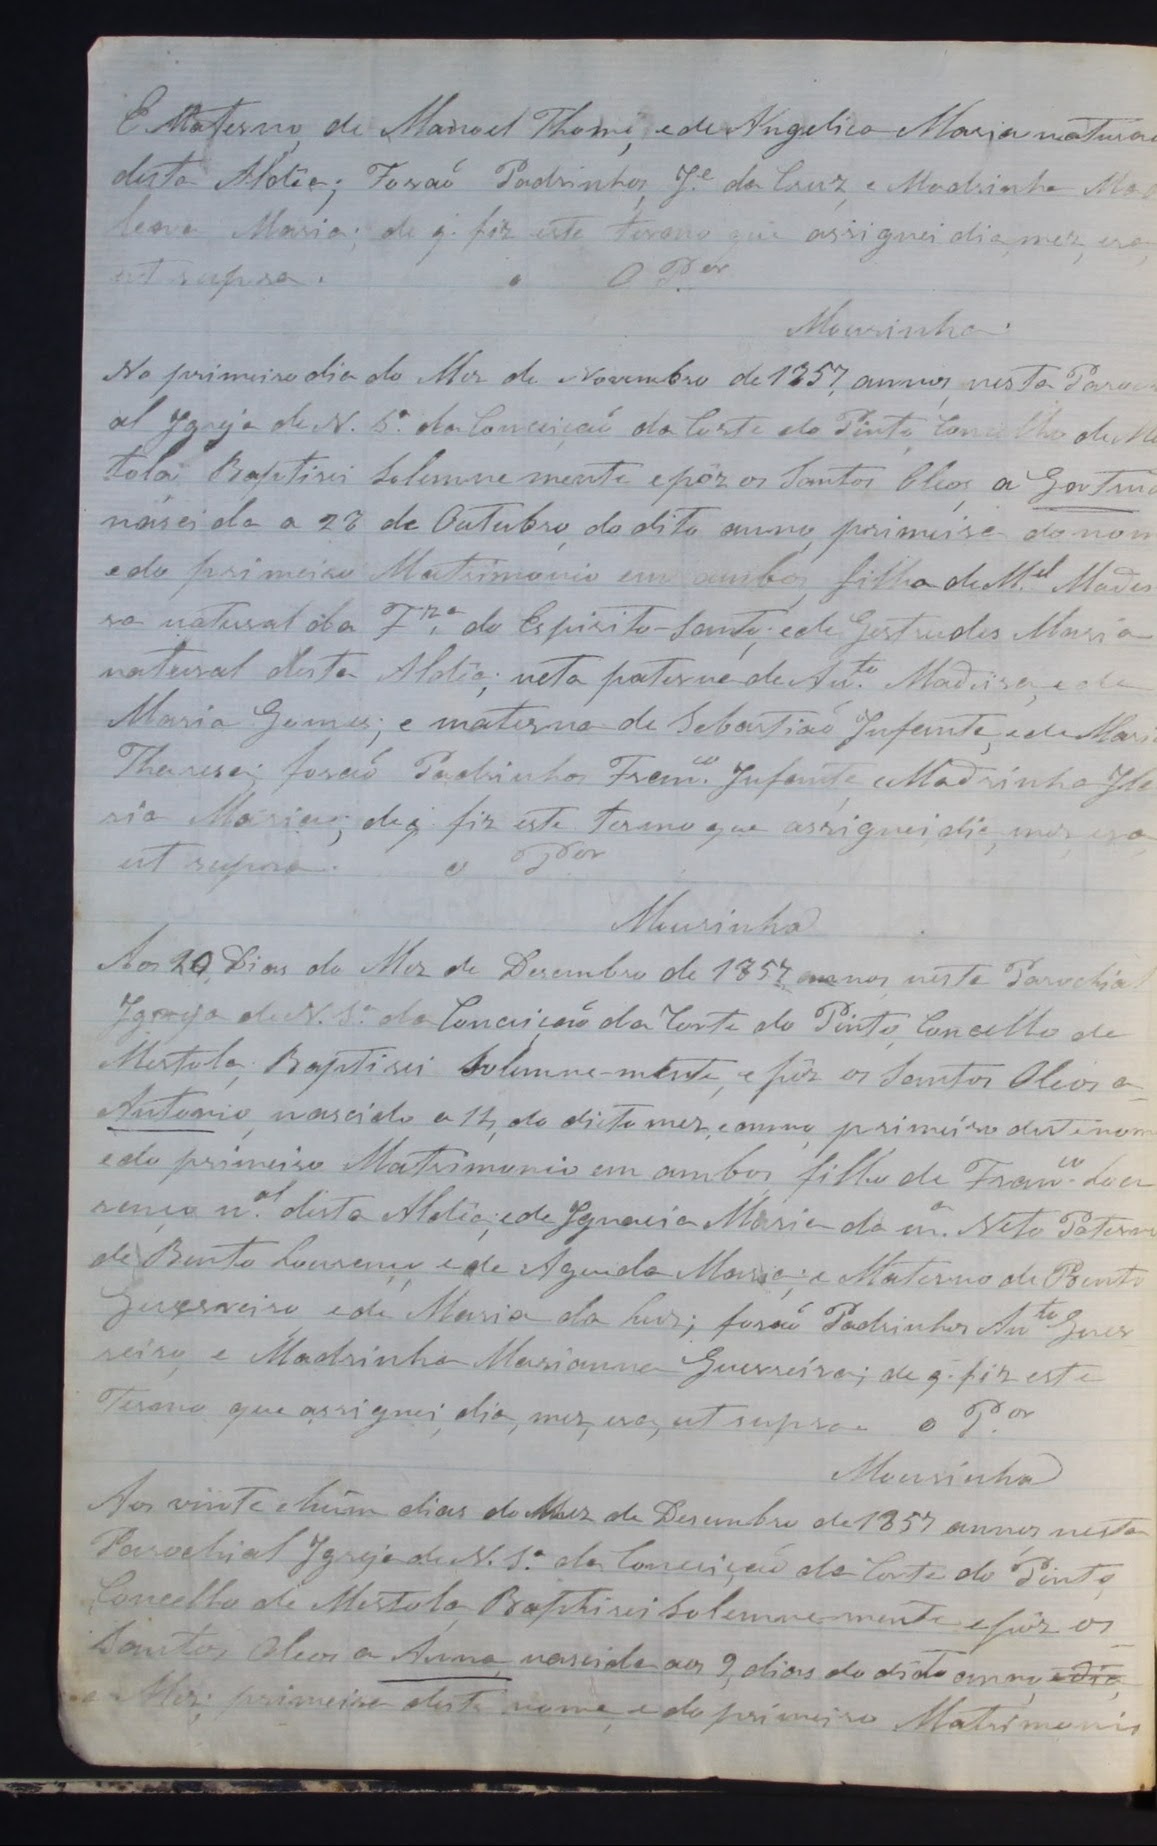 E Materno, de Manoel Thomé, e de Angelica Maria natura
desta Aldêa; Foraó Padrinhos, J.e da Cruz, e Madrinha Ma
lena Maria; de q. fiz este termo que assignei dia, mez, era,
ut supra. O P.or
Mourinha
No primeiro dia do Mez de Novembro de 1857, annos, nesta Paroc
al Igreja de N. S.a da Conceiçaó da Corte do Pinto, Concelho de Me
tola; Baptisei Solemnemente e pôz os Santos Oleos, a Gertrud
nascida a 28 de Outubro, do dito anno, primeira do nom
e do primeiro Matrimonio em ambos, filha de M.el Madei
ra natural da F.za do Espirito-Santo; e de Gertrudes Maria
natural desta Aldêa; neta paterna de An.to Madeira, e de
Maria Gomes; e materna de Sebastiaó Infante, e de Mari
Theresa; foraó Padrinhos Fran.co Infante, e Madrinha
ria Maria; de q. fiz este termo que assignei, dia, mez, era,
ut supra. o P.or
Mourinha
Aos 20, Dias do Mez de Desembro de 1857, annos, nesta Parochial
Igreja de N. S.a da Conceiçaó da Corte do Pinto, Concelho de
Mertola; Baptisei Solemne-mente, e pôz os Santos Oleos a
Antonio, nascido a 14, do dicto mez, e anno, primeiro deste nom
e do primeiro Matrimonio em ambos, filho de Fran.co Lou
renço n.al desta Aldêa; e de Ignacia Maria da m.a Neto Paterno
de Bento Lourenço, e de Agueda Maria; e Materno de Bento
Guerreiro e de Maria da Luz; foraó Padrinhos An.to Guer
reiro, e Madrinha Marianna Guerreira; de q. fiz este
Termo que assignei, dia, mez, era, ut supra o P.or
Mourinha
Aos vinte e hum dias do Mez de Desembro de 1857 annos nesta
Parochial Igreja de N. S.a da Conceiçaó da Corte do Pinto,
Concelho de Mertola, Baptisei Solemne-mente e pôz os
Santos Oleos a Anna, nascida aos 9, dias do dito anno, e dia,
e Mez; primeira deste nome, e do primeiro Matrimonio